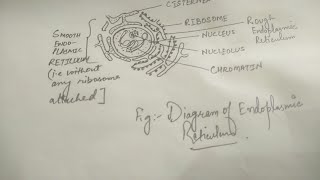 CISTERNAE
RIBOSOME
NUCLEUS
Rough
Endoplasmic
Reticulum
NUCLEOLUS
CHROMATIN
SMOOTH
ENDO-
PLASMIC
RETICULUM
(i.e without
any ribosome
attached]
Fig:- Diagram of Endoplasmic
Reticulum